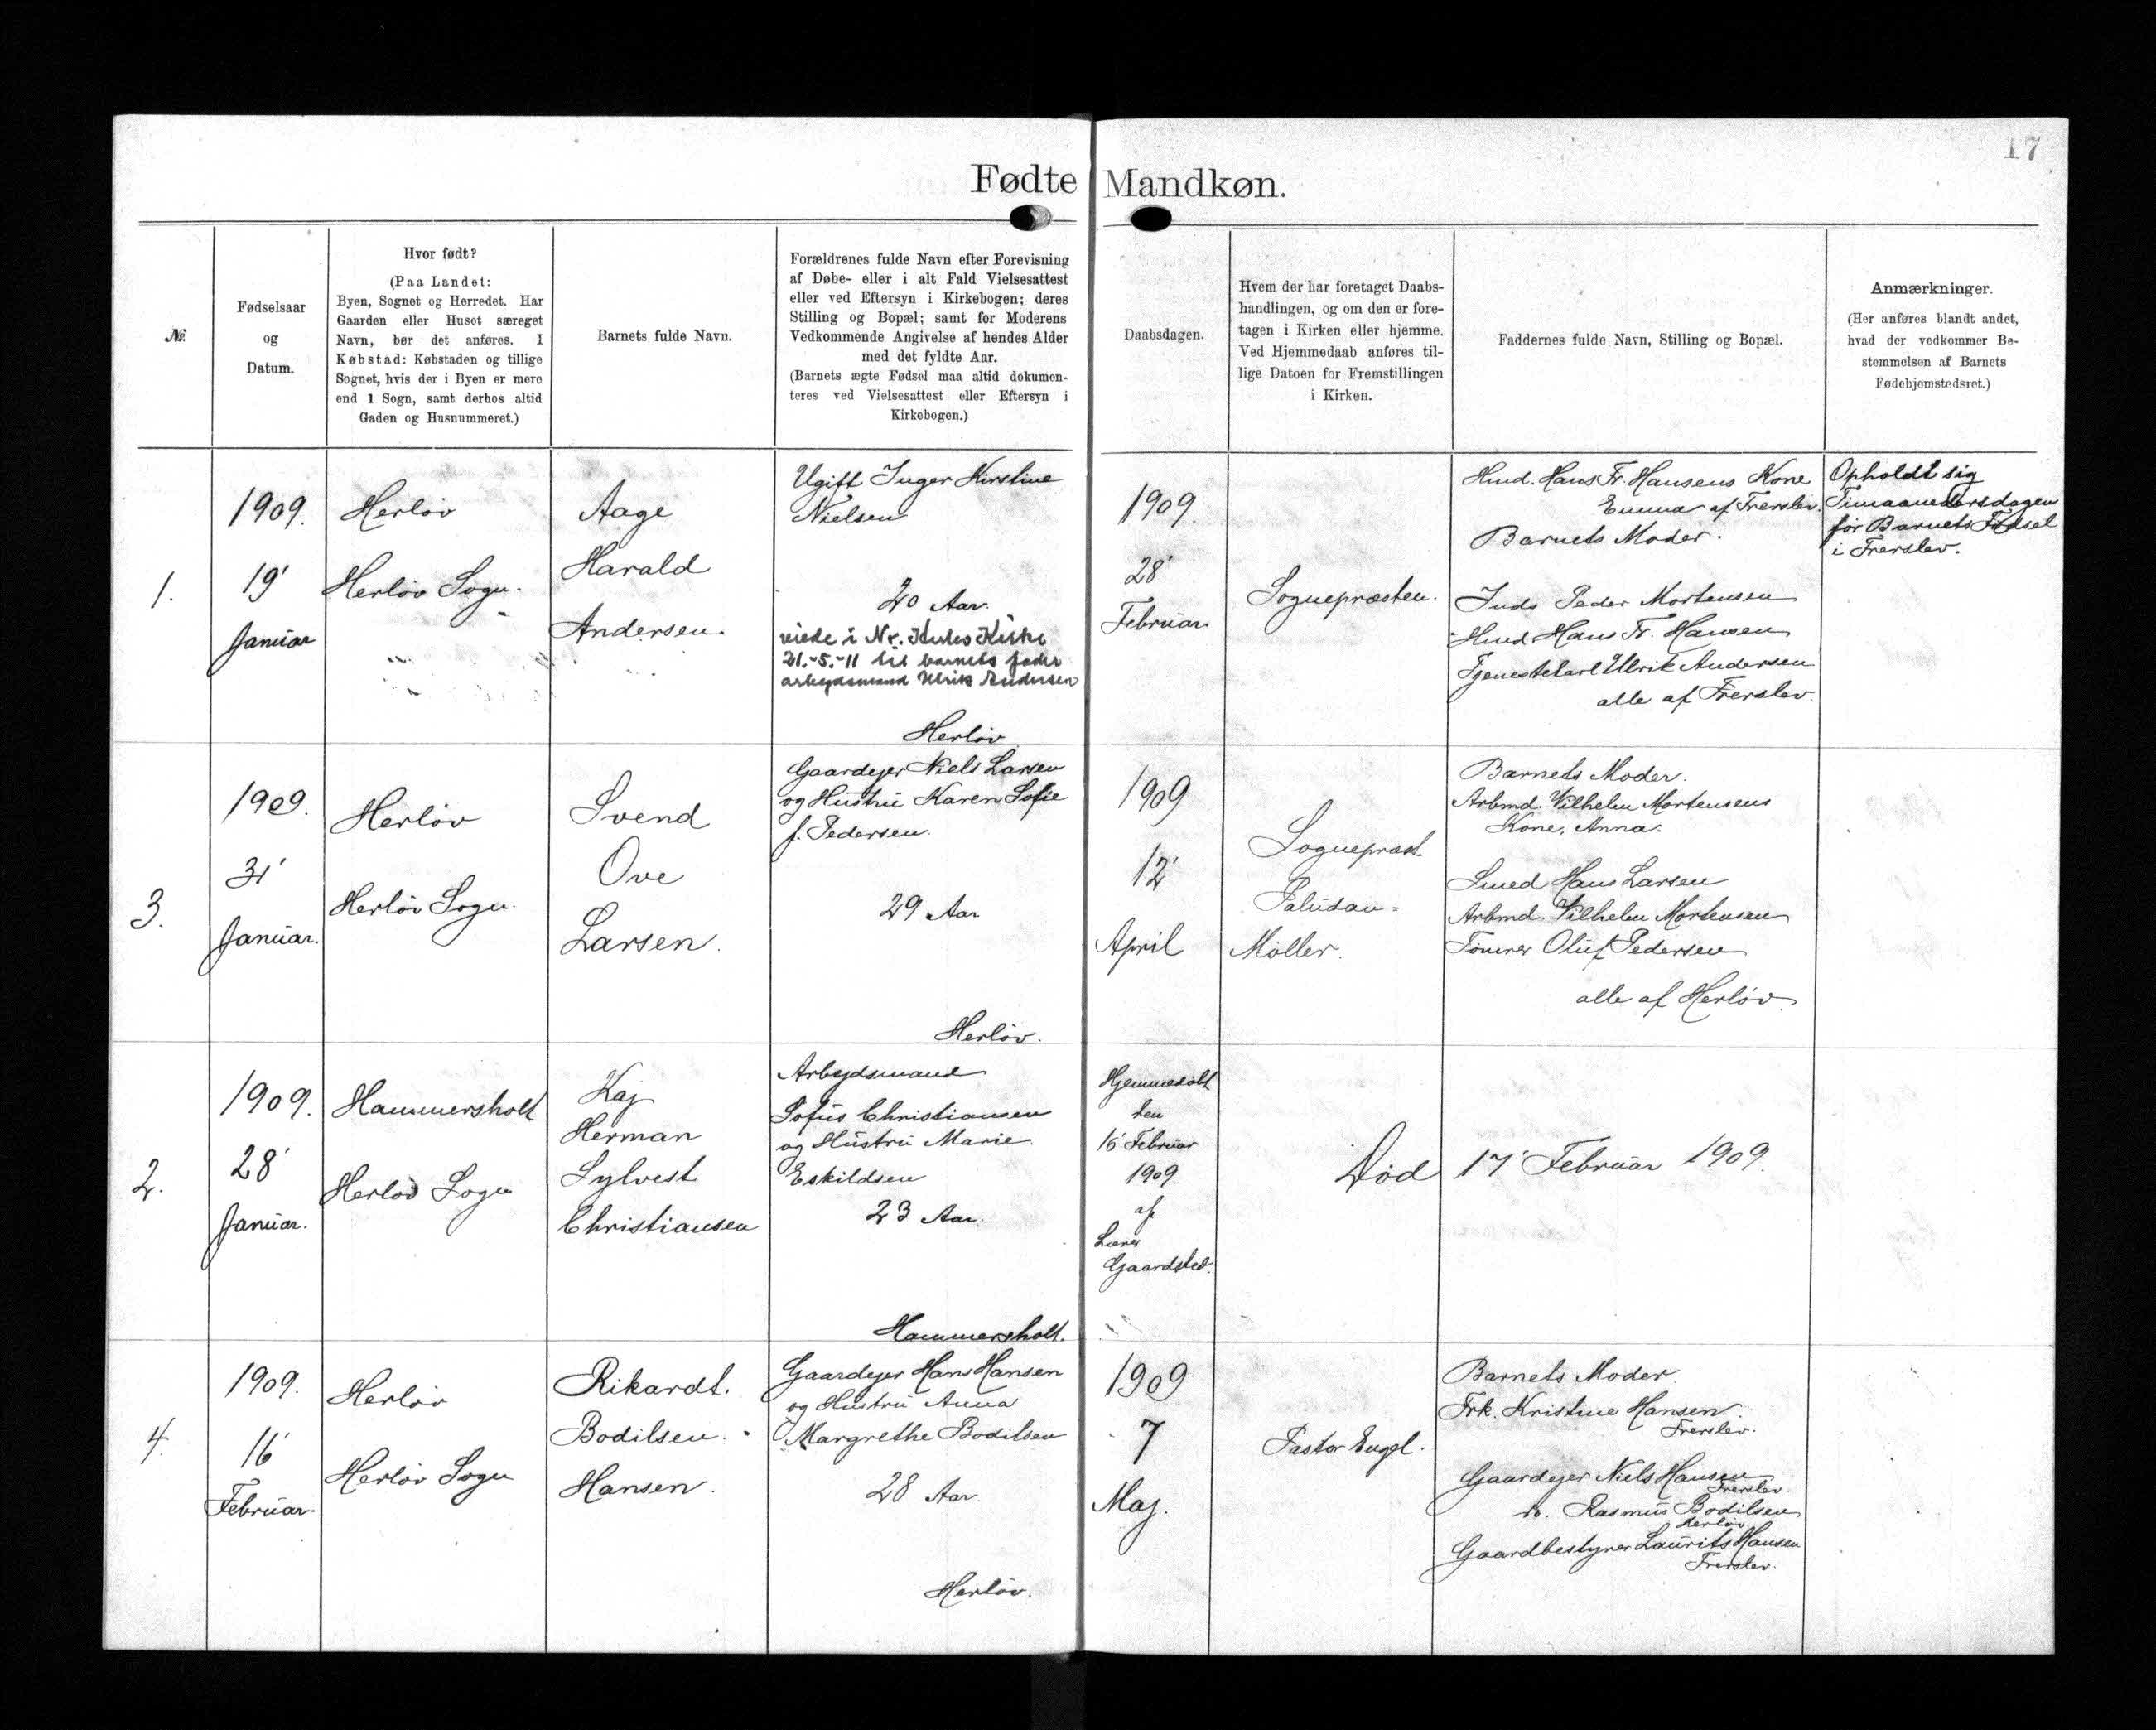 17
Fødte Mandkøn.
№.
Fødselsaar
og
Datum.
Hvor født?
(Paa Landet:
Byen, Sognet og Herredet. Har
Gaarden eller Huset særeget
Navn, bør det anføres. I
Købstad: Købstaden og tillige
Sognet, hvis der i Byen er mere
end 1 Sogn, samt derhos altid
Gaden og Husnummeret.)
Barnets fulde Navn.
Forældrenes fulde Navn efter Forevisning
af Døbe- eller i alt Fald Vielsesattest
eller ved Eftersyn i Kirkebogen; deres
Stilling og Bopæl; samt for Moderens
Vedkommende Angivelse af hendes Alder
med det fyldte Aar.
(Barnets ægte Fødsel maa altid dokumen-
teres ved Vielsesattest eller Eftersyn i
Kirkebogen.)
Daabsdagen.
Hvem der har foretaget Daabs-
handlingen, og om den er fore-
tagen i Kirken eller hjemme.
Ved Hjemmedaab anføres til-
lige Datoen for Fremstillingen
i Kirken.
Faddernes fulde Navn, Stilling og Bopæl.
Anmærkninger.
(Her anføres blandt andet,
hvad der vedkommer Be-
stemmelsen af Barnets
Fødehjemstedsret.)
1.
1909.
19'
Januar
Herløv
Herløv Sogn.
Aage
Harald
Andersen.
Ugift Inger Kirstine
Nielsen
20 Aar.
viede i Nr. Kirke
21.-5.-11 til barnets fader
arbejdsmand Ulrik Andersen
Herløv
1909.
28'
Februar
Sognepræsten.
Hmd. Hans Fr. Hansens Kone
Emma af Frerslev.
Barnets Moder.
Inds Peder Mortensen
Hmd Hans Fr. Hansen
Tjenestekarl Ulrik Andersen
alle af Frerslev.
Opholdt sig
Timaanedersdagen
før Barnets Fødsel
i Frerslev.
3.
1909.
31'
Januar.
Herløv
Herløv Sogn.
Svend
Ove
Larsen.
Gaardejer Niels Larsen
og Hustru Karen Sofie
f. Pedersen.
29 Aar
Herløv.
1909
12'
April
Sognepræst
Paludan-
Møller.
Barnets Moder.
Arbmd. Vilhelm Mortensens
Kone, Anna.
Smed Hans Larsen
Arbmd. Vilhelm Mortensen
Tømrer Oluf Pedersen
alle af Herløv.
2.
1909.
28'
Januar.
Hammersholt
Herløv Sogn
Kaj
Herman
Sylvest
Christiansen
Arbejdsmand
Sofus Christiansen
og Hustru Marie
Eskildsen
23 Aar.
Hammersholt.
Hjemmedøbt
den
16' Februar
1909.
af
Lærer
Gaardsted.
Død 17' Februar 1909.
4.
1909.
16'
Februar.
Herløv
Herløv Sogn
Rikardt.
Bodilsen.
Hansen.
Gaardejer Hans Hansen
og Hustru Anna
Margrethe Bodilsen
28 Aar.
Herløv.
1909
7
Maj.
Pastor Engel.
Barnets Moder.
Frk. Kristine Hansen.
Frerslev.
Gaardejer Niels Hansen
Frerslev.
do. Rasmus Bodilsen
Herløv.
Gaardbestyrer Laurits Hansen
Frerslev.